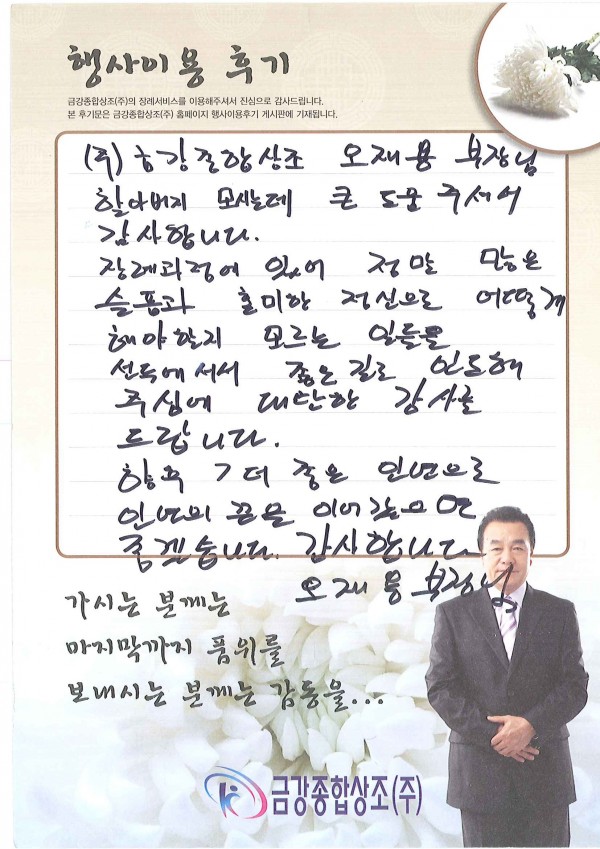 행사이용 후기
금강종합상조(주)의 장례서비스를 이용해주셔서 진심으로 감사드립니다.
본 후기문은 금강종합상조(주) 홈페이지 행사이용후기 게시판에 기재됩니다.
(주) 금강종합상조 오재용 부장님
할아버지 모시는데 큰 도움 주셔서
감사합니다.
장례과정에 있어 정말 많은
슬픔과 혼미한 정신으로 어떻게
해야할지 모르는 일들을
선두에 서서 좋은 길로 인도해
주심에 대단한 감사를
드립니다.
향후 더 좋은 인연으로
인연의 끈을 이어갔으면
좋겠습니다. 감사합니다
오재용 부장님
가시는 분께는
마지막까지 품위를
보내시는 분께는 감동을...
금강종합상조(주)